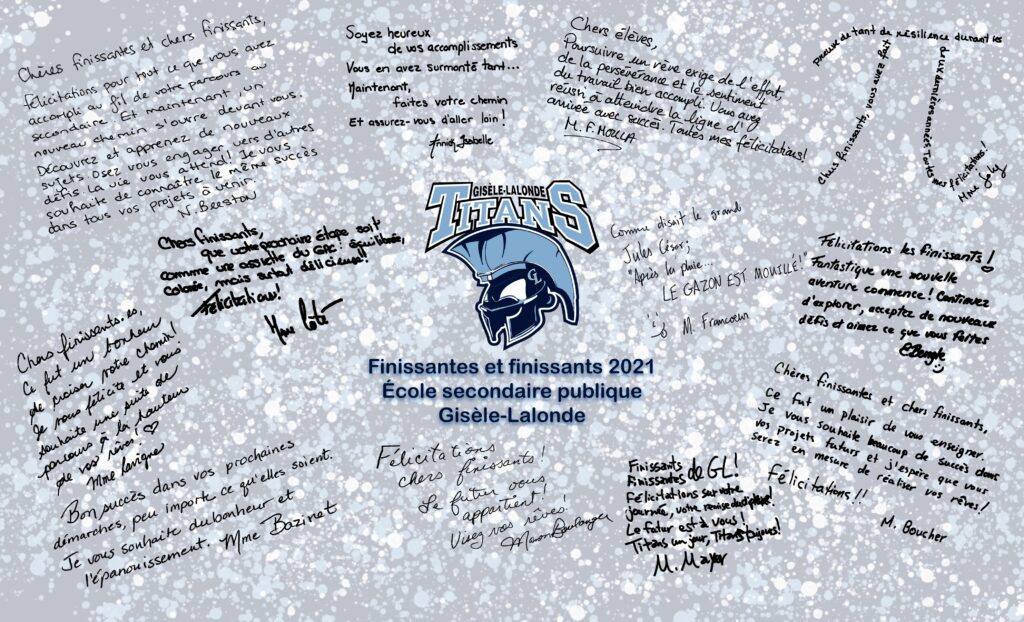 Chères finissantes et chers finissants,
Félicitations pour tout ce que vous avez
accompli au fil de votre parcours au
secondaire. Et maintenant, un
nouveau chemin s'ouvre devant vous.
Découvrez et apprenez de nouveaux
sujets. Osez vous engager vers d'autres
défis. La vie vous attend! Je vous
souhaite de connaître le même succès
dans tous vos projets à venir.
N. Beeston
Soyez heureux
de vos accomplissements
Vous en avez surmonté tant...
Maintenant,
faites votre chemin
Et assurez-vous d'aller loin!
Isabelle
Chers élèves,
Poursuivre un rêve exige de l'effort,
de la persévérance et le sentiment
du travail bien accompli. Vous avez
réussi à atteindre la ligne d'
arrivée avec succès. Toutes mes félicitations!
M. F. MOLLA
Chers finissants, vous avez fait
preuve de tant de résilience durant les
deux dernières années. Toutes mes félicitations!
Mme Joly
GISÈLE-LALONDE
TITANS
GL
Finissantes et finissants 2021
École secondaire publique
Gisèle-Lalonde
Chers finissants,
que votre prochaine étape soit
comme une assiette du GAC: équilibrée,
colorée, mais surtout délicieuse!!
Félicitations!
Mme Côté
Comme disait le grand
Jules César;
"Après la pluie...
LE GAZON EST MOUILLÉ!"
M. Francoeur
Félicitations les finissants!
Fantastique une nouvelle
aventure commence! Continuez
d'explorer, acceptez de nouveaux
défis et aimez ce que vous faites
Chers finissants.es,
Ce fut un bonheur
de croiser votre chemin!
Je vous félicite et vous
souhaite une suite de
parcours à la hauteur
de vos rêves! ♡
Mme Lavigne
Bon succès dans vos prochaines
démarches, peu importe ce qu'elles soient.
Je vous souhaite du bonheur et
l'épanouissement. Mme Bazinet
Félicitations
chers finissants!
Le futur vous
appartient!
Vivez vos rêves!
Manon Boulanger
Finissants
Finissantes de GL!
Félicitations sur votre
journée, votre remise du diplôme!
Le futur est à vous!
Titans un jour, Titans toujours!
M. Mayer
Chères finissantes et chers finissants,
Ce fut un plaisir de vous enseigner.
Je vous souhaite beaucoup de succès dans
vos projets futurs et j'espère que vous
serez en mesure de réaliser vos rêves!
Félicitations!!
M. Boucher